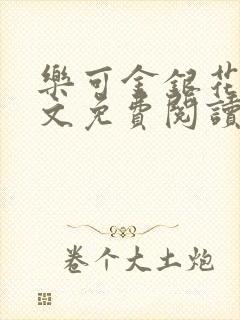 樂可金銀花
文免費閱讀
卷个大土炮